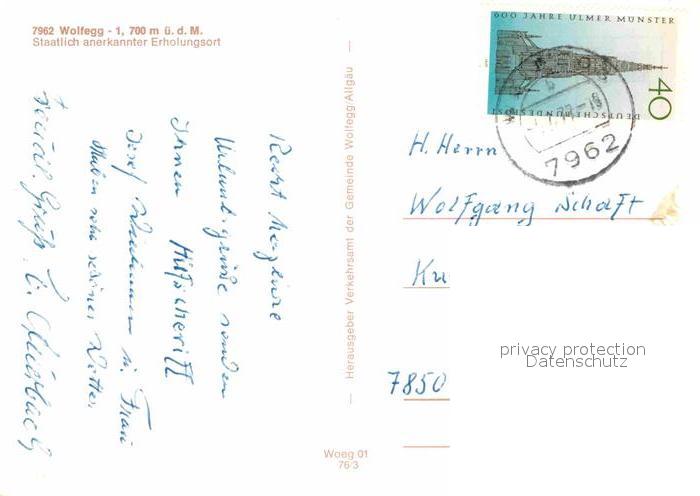 7962 Wolfegg - 1, 700 m ü. d. M.
Staatlich anerkannter Erholungsort
Recht herzliche
Urlaubsgrüße senden
Ihnen
Josef u. Frau
Haben sehr schönes Wetter.
Freundl. Grüß.
Herausgeber Verkehrsamt der Gemeinde Wolfegg/Allgäu
Woeg 01
76/3
600 JAHRE ULMER MÜNSTER
40
DEUTSCHE BUNDESPOST
7962
H. Herrn
Wolfgang Schaft
Ku
7850
privacy protection
Datenschutz